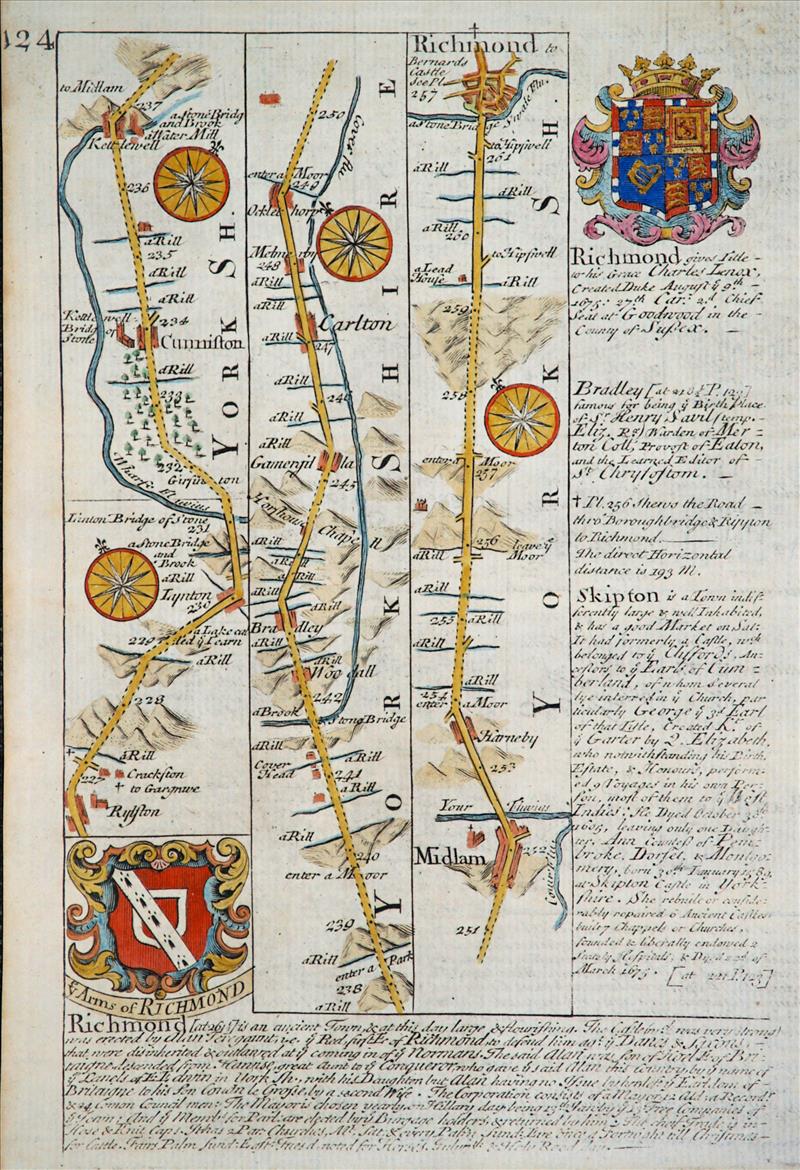 124
to Midlam
237
a Stone Bridg
and Brook
a Water Mill
Kettlewell
236
a Rill
235
a Rill
a Rill
234
Kettlewell
Bridg of
Stone
Cunniston
a Rill
233
232
Girsington
Wharfe Fluvius
YORK SH.
Linton Bridge of Stone
231
a Stone Bridge
and
Brook
a Rill
Lynton
230
229
a Rill
228
a Rill
227
Crackston
to Gargrave
Rylston
ye Arms of RICHMOND
250
Cover flu
enter a Moor
249
Melmerby
248
a Rill
a Rill
Carlton
a Rill
247
a Rill
246
a Rill
a Rill
Gamersgil
245
Horshouse Chapell
a Rill
a Rill
a Rill
a Rill
a Rill
Bradley
a Rill
a Rill
Woodall
242
a Brook
a Stone Bridge
a Rill
Cover
Head
a Rill
241
a Rill
a Rill
240
enter a Moor
239
a Rill
enter a Park
238
a Rill
YORKSHIRE
Richmond to
Bernards
Castle
See Pl.
257
Swale Flu.
a Stone Bridge
to Hipswell
261
a Rill
a Rill
a Rill
260
to Hipswell
a Lead
House
a Rill
259
258
enter a Moor
257
256
leave ye
Moor
a Rill
a Rill
255
a Rill
a Rill
a Rill
254
enter a Moor
Harneby
253
Your Fluvius
Midlam
252
251
YORK SH.
Richmond gives Title
to his Grace Charles Lenox,
Created Duke August ye 9th
1675: 27th Car: 2d Chief
Seat at Goodwood in the
County of Sussex.
Bradley
famous for being ye Birth Place
of Sr. Henry Savil temp.
Eliz. Rg) Warden of Mer=
ton Coll, Provost of Eaton,
and the Learned Editor of
St. Chrysostom.
† Pl. 256 Shews the Road
thro' Boroughbridge & Rippon
to Richmond.
The direct Horizontal
distance is 193 M.
Skipton is a Town indif=
ferently large & well Inhabited,
& has a good Market on Sat:
It had formerly a Castle, wch
belonged to ye Cliffords, An=
cestors to ye Earls of Cum=
berland, of whom several
lye interred in ye Church, par
ticularly George ye 3d Earl
of that Title, Created Kt. of
ye Garter by Q. Elizabeth,
who notwithstanding his Birth,
Estate, & Honours, perform=
ed 9 Voyages in his own Per=
son, most of them to ye West
Indies: He Dyed October 30th
1605, leaving only one Daugh=
ter, Ann Countess of Pem=
broke, Dorset, & Montgo=
mery, born 30th January 1589,
at Skipton Castle in York=
shire. She rebuilt or conside=
rably repaired 6 Ancient Castles
built 7 Chappels or Churches,
founded & liberally endowed 2
Stately Hospitals, & Dyed 22d of
March 1675.
Richmond is an ancient Town & at this day large & flourishing. The Castle was very strong
was erected by Alan ye first E of Richmond to defend him agt. ye Danes &
that were disinherited & outlawed at ye coming in of ye Normans. The said Alan was Son of E of Bri=
taigne, descended from great Aunt to ye Conqueror who gave ye said Alan this Country by ye name of
ye Lands of E. Edwin in York Sh. with his Daughter but Alan having no Issue by her left ye Earldom of
Britaigne to his Son Conan le Grosse, by a Second Wife. The Corporation consists of a Mayor 12 Ald: a Recordr
& 24 Comon Council men. The Mayor is chosen yearly on Hillary day being 13th by ye 13 Free Companies of
ye Town, And ye Membrs for Parl. are elected by ye Burgage holders & returned by him. The chief Trade is in
Hose & Knit Caps. It has 2 Par. Churches, Mt. Sat. & every Palm Sund.
for Cattle. Fairs Palm Sund.